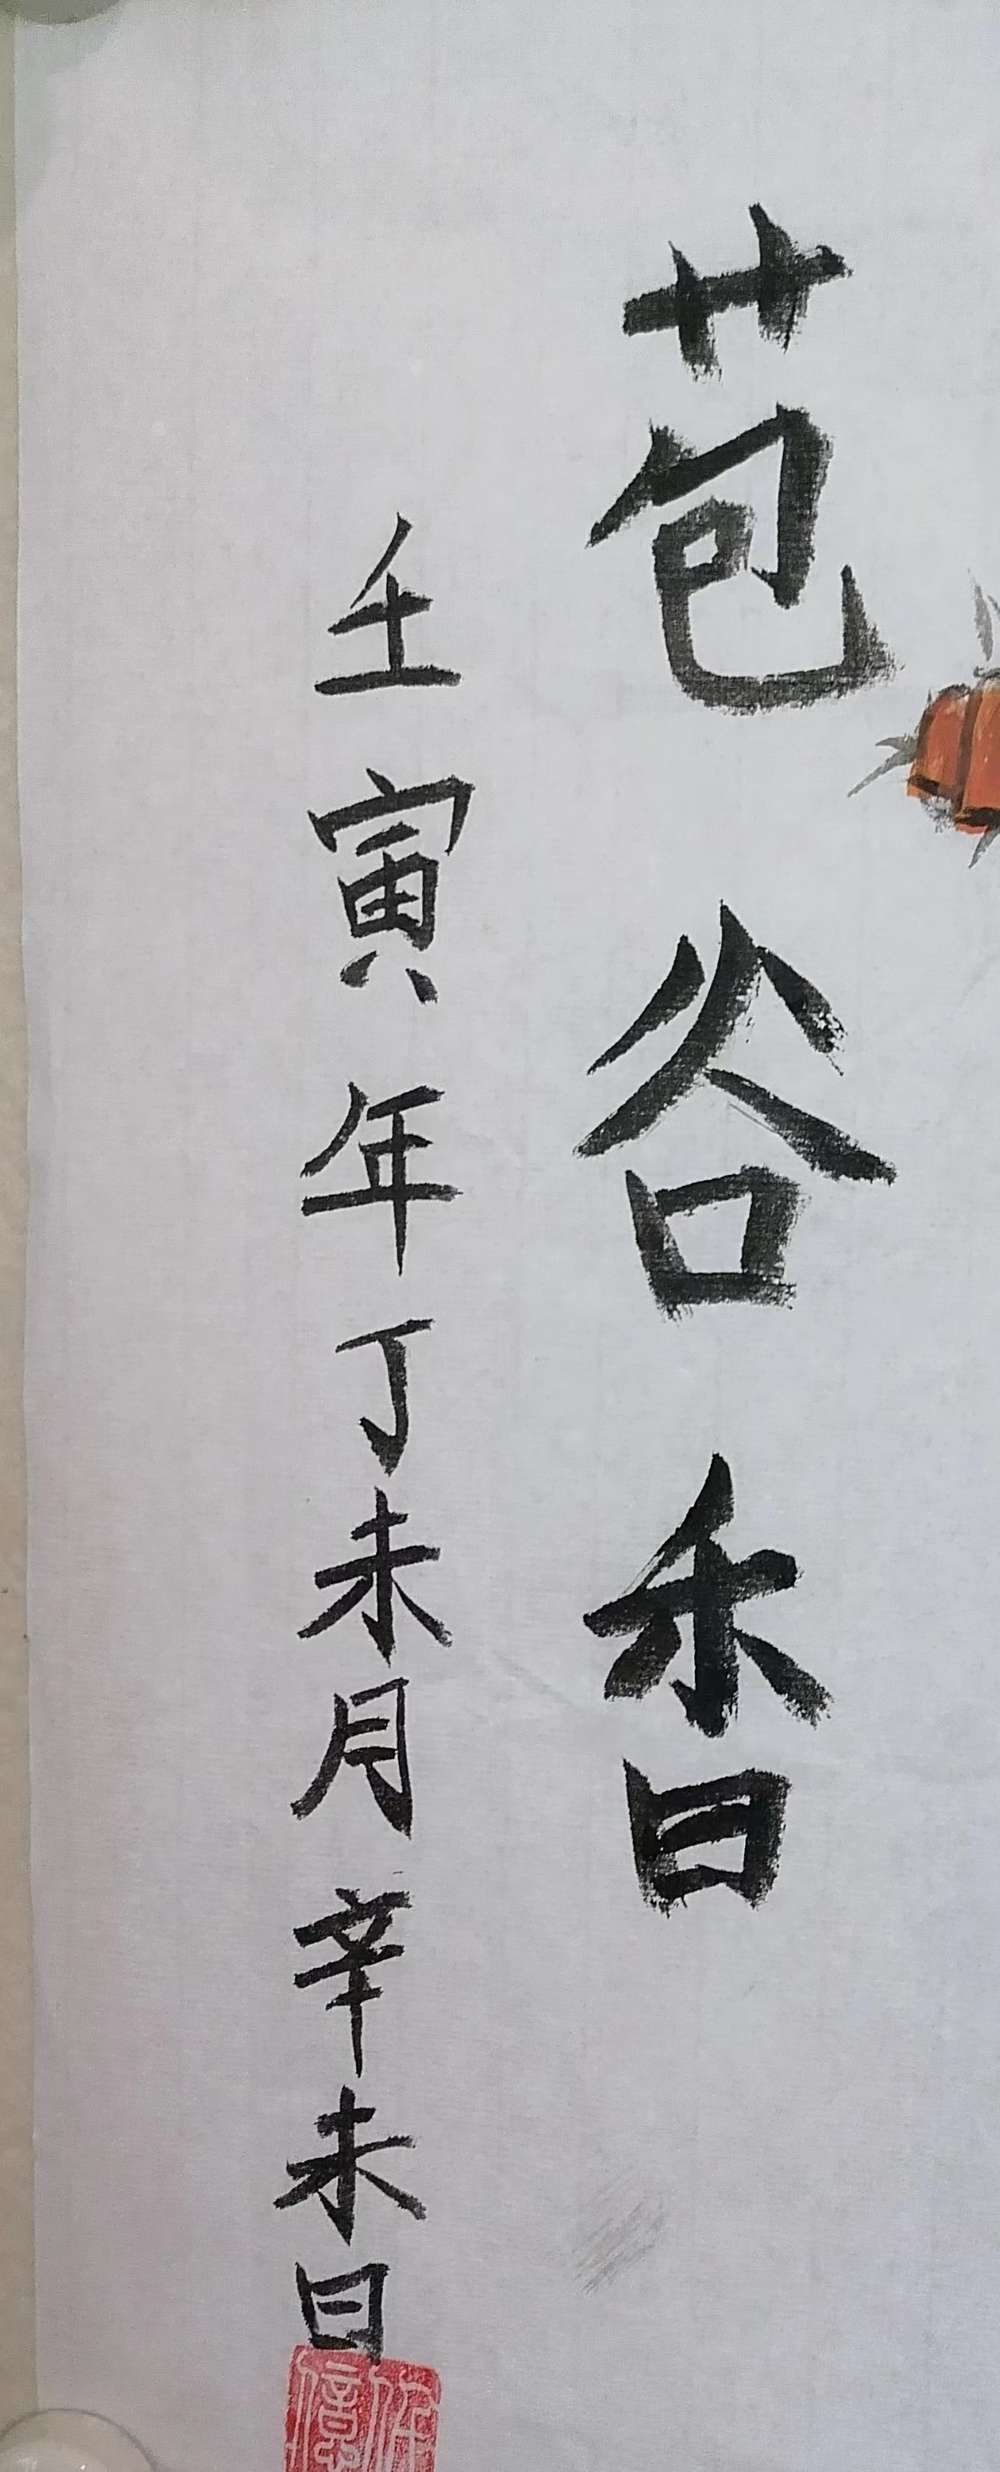 苞谷香
壬寅年丁未月辛未日